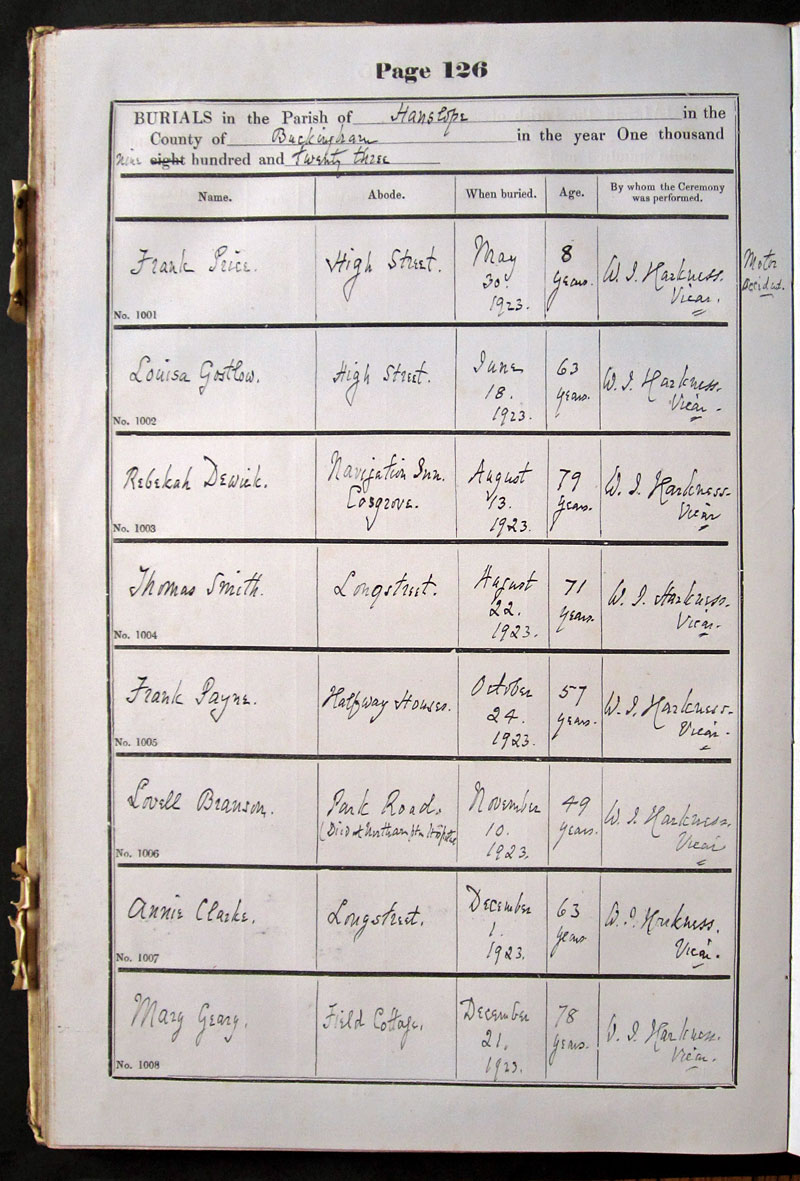 Page 126
BURIALS in the Parish of Hanslope in the
County of Buckingham in the year One thousand
nine eight hundred and twenty three
Name. Abode. When buried. Age. By whom the Ceremony was performed.
Frank Price. High Street. May 30. 1923. 8 years. W. J. Harkness. Vicar. Motor Accident.
No. 1001
Louisa Gostlow. High Street. June 18. 1923. 63 years. W. J. Harkness. Vicar.
No. 1002
Rebekah Dewick. Navigation Inn. Cosgrove. August 13. 1923. 79 years. W. J. Harkness. Vicar
No. 1003
Thomas Smith. Longstreet. August 22. 1923. 71 years. W. J. Harkness. Vicar.
No. 1004
Frank Payne. Halfway Houses. October 24. 1923. 57 years. W. J. Harkness. Vicar.
No. 1005
Lovell Branson. Park Road. (Died at Northampton Hospital November 10. 1923. 49 years. W. J. Harkness. Vicar
No. 1006
Annie Clarke. Longstreet. December 1. 1923. 63 years W. J. Harkness. Vicar.
No. 1007
Mary Geary. Field Cottage. December 21. 1923. 78 years. W. J. Harkness. Vicar.
No. 1008